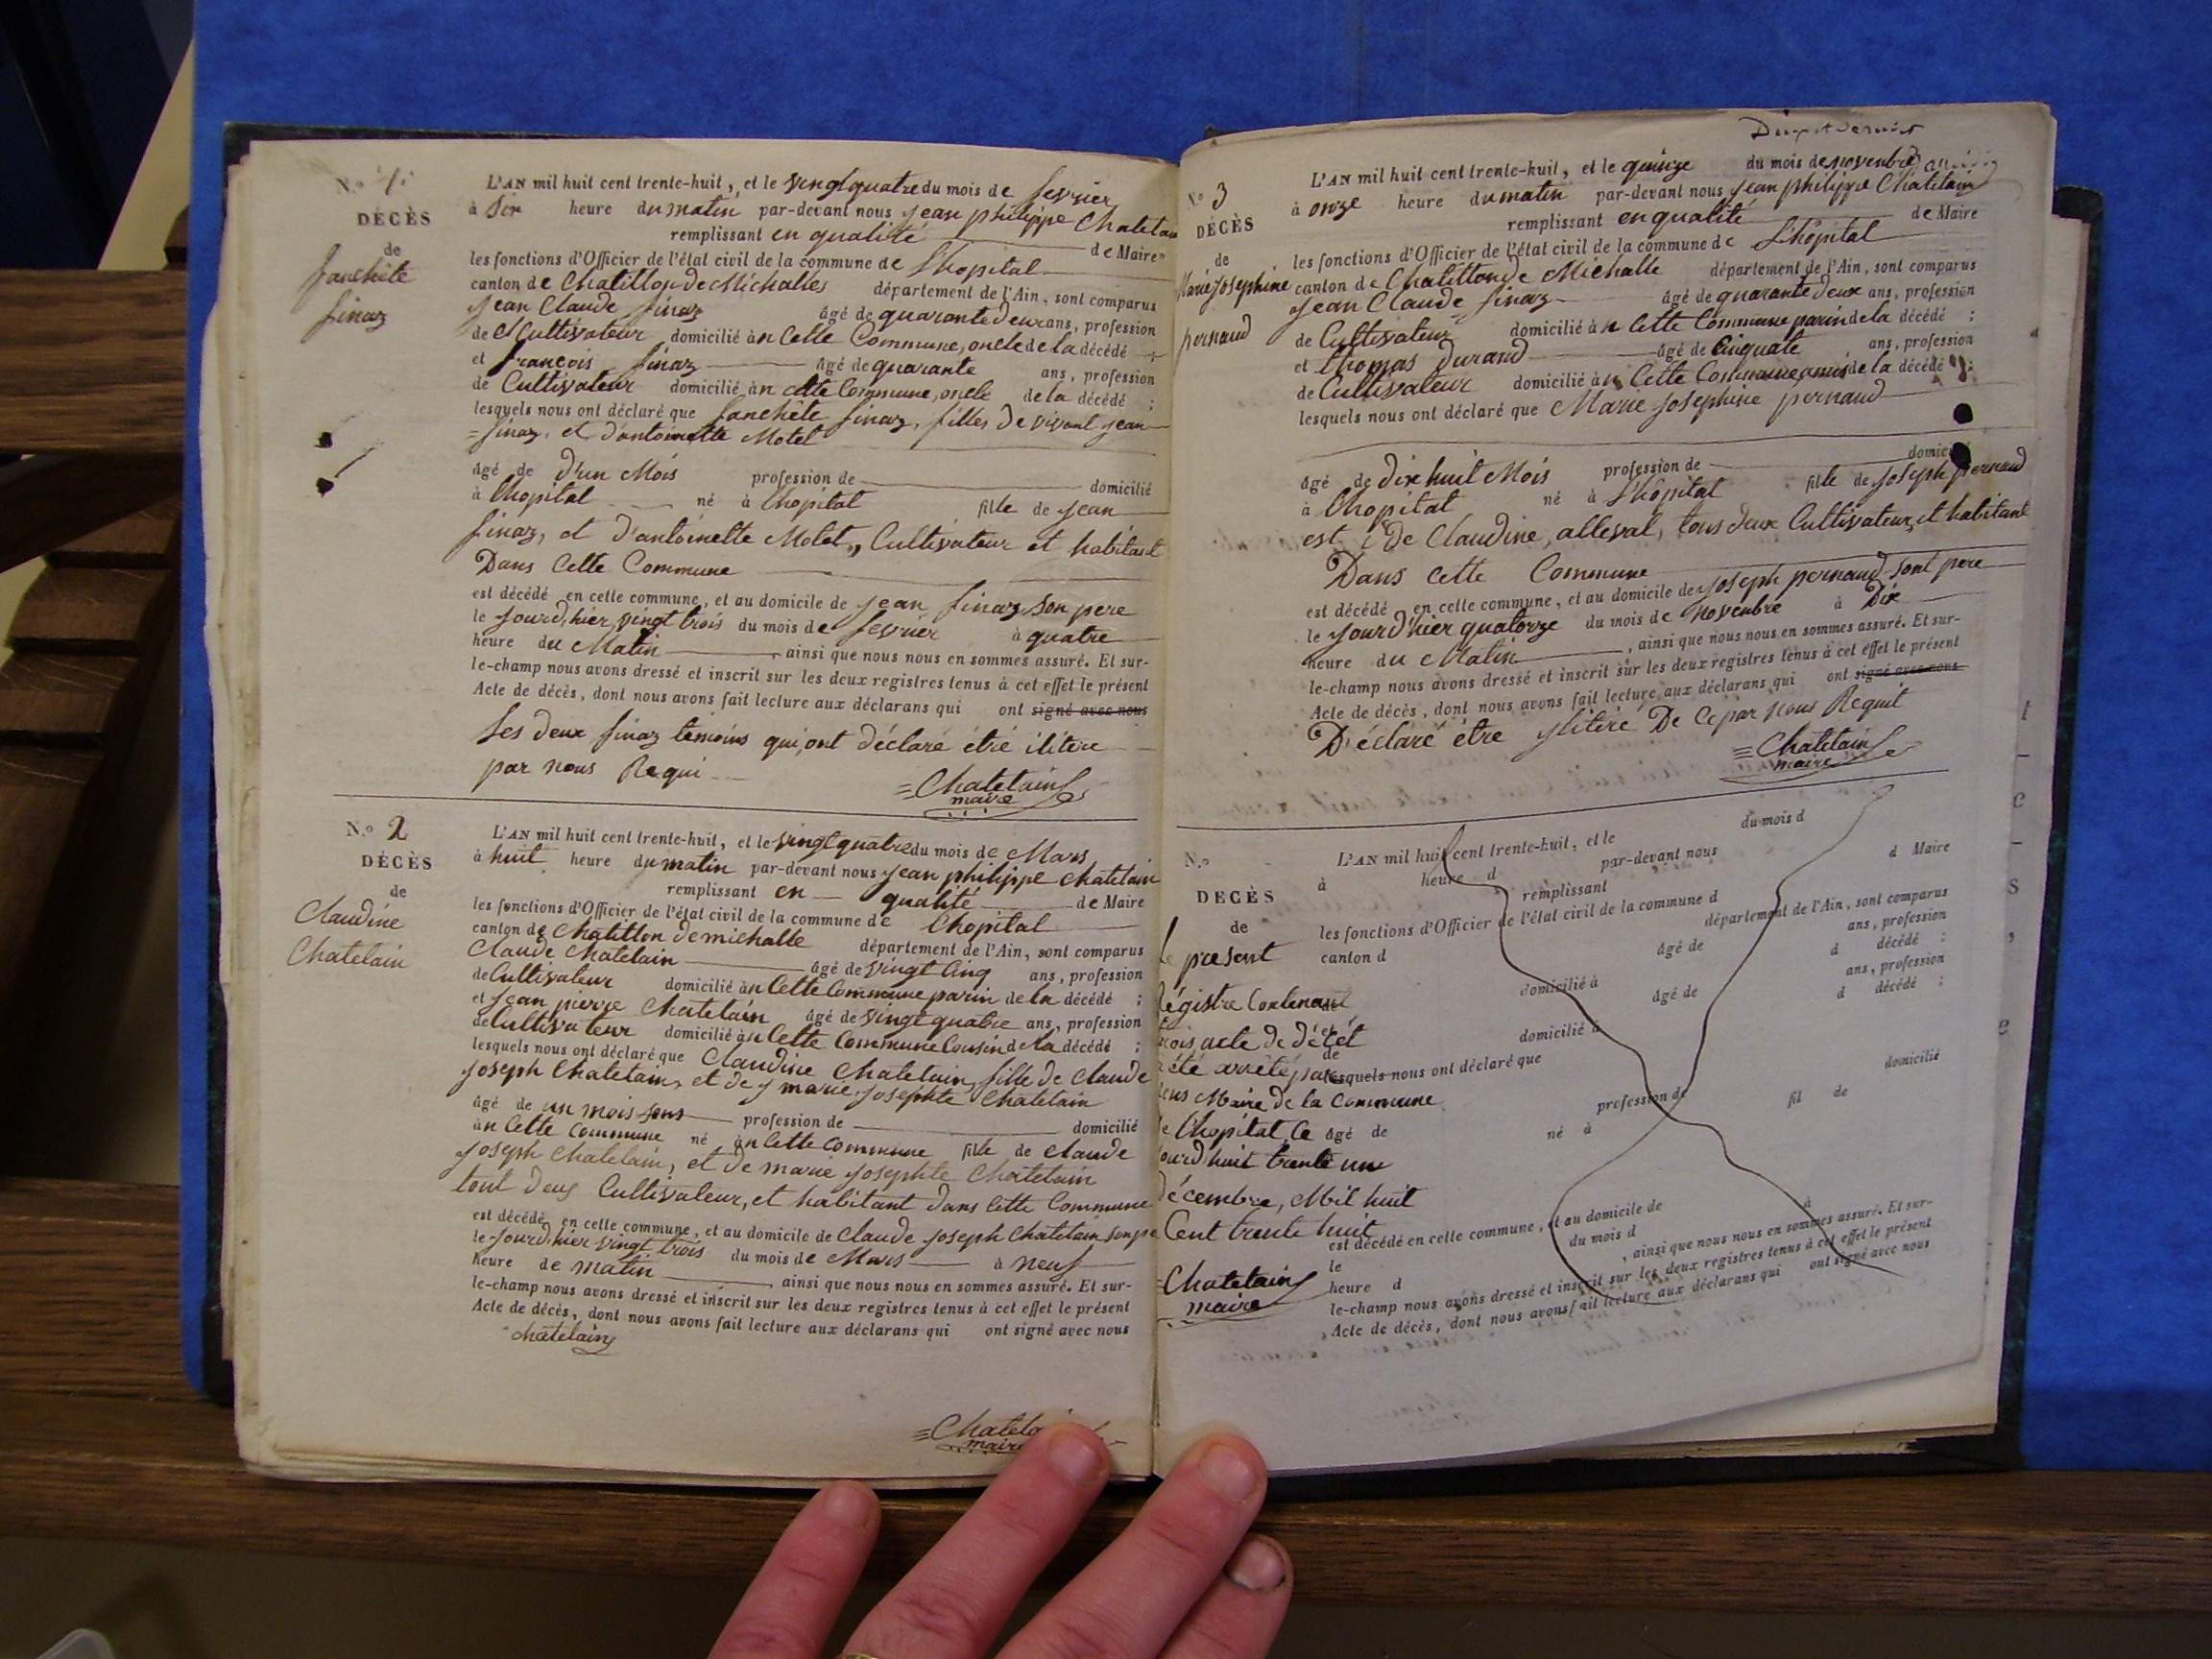 N.o 1.
DÉCÈS
de
fanchète
finaz
L'AN mil huit cent trente-huit, et le vingt quatre du mois de fevrier
à Dix heure du matin par-devant nous jean philippe Chatelain
remplissant en qualité de Maire
les fonctions d'Officier de l'état civil de la commune de Lhopital
canton de Chatillon de Michalles département de l'Ain, sont comparus
Jean Claude finaz âgé de quarante deux ans, profession
de Cultivateur domicilié àn Cette Commune, oncle de la décédé ;
et françois finaz âgé de quarante ans, profession
de Cultivateur domicilié àn cette Commune, oncle de la décédé ;
lesquels nous ont déclaré que fanchète finaz, filles de vivant jean
finaz, et d'antoinette Motet
âgé de d'un Mois profession de domicilié
à lhopital né à lhopital fille de jean
finaz, et d'antoinette Motet, Cultivateur et habitant
Dans Cette Commune
est décédé en cette commune, et au domicile de jean finaz son pere
le jourd'hier vingt trois du mois de fevrier à quatre
heure du Matin, ainsi que nous nous en sommes assuré. Et sur-
le-champ nous avons dressé et inscrit sur les deux registres tenus à cet effet le présent
Acte de décès, dont nous avons fait lecture aux déclarans qui ont signé avec nous
Les deux finaz temoins qui, ont déclaré étré ilitere
par nous Requi
Chatelain
maire
N.o 2
DÉCÈS
de
Claudine
Chatelain
L'AN mil huit cent trente-huit, et le vingt quatre du mois de Mars
à huit heure du matin par-devant nous jean philippe chatelain
remplissant en qualité de Maire
les fonctions d'Officier de l'état civil de la commune de lhopital
canton de Chatillon de michalle département de l'Ain, sont comparus
Claude Chatelain âgé de vingt Cinq ans, profession
de Cultivateur domicilié àn Cette Commune parin de la décédé ;
et Jean pierre Chatelain âgé de vingt quatre ans, profession
de Cultivateur domicilié àn Cette Commune Cousin de la décédé ;
lesquels nous ont déclaré que Claudine Chatelain, fille de Claude
joseph Chatelain, et de marie josephte Chatelain
âgé de un mois profession de domicilié
àn Cette Commune né àn Cette Commune fille de Claude
joseph Chatelain, et de marie josephte Chatelain
tout deux Cultivateur, et habitant dans Cette Commune
est décédé en cette commune, et au domicile de Claude joseph Chatelain son pe
le jourd'hier vingt trois du mois de Mars à neuf
heure de matin, ainsi que nous nous en sommes assuré. Et sur-
le-champ nous avons dressé et inscrit sur les deux registres tenus à cet effet le présent
Acte de décès, dont nous avons fait lecture aux déclarans qui ont signé avec nous
chatelain
maire
N.o 3
DÉCÈS
de
Marie josephine
pernaud
L'AN mil huit cent trente-huit, et le quinze du mois de novembre
à onze heure du matin par-devant nous jean philippe Chatelain
remplissant en qualité de Maire
les fonctions d'Officier de l'état civil de la commune de Lhôpital
canton de Chatillon de Michalle département de l'Ain, sont comparus
Jean Claude finaz âgé de quarante deux ans, profession
de Cultivateur domicilié àn Cette Commune parin de la décédé ;
et thomas Durand âgé de Cinquate ans, profession
de Cultivateur domicilié àn Cette Commune, amis de la décédé ;
lesquels nous ont déclaré que Marie josephine pernaud
âgé de dix huit Mois profession de domic
à lhopital né à Lhôpital fille de joseph pernaud
est de Claudine, alleval, tous deux Cultivateur, et habitant
Dans Cette Commune
est décédé en cette commune, et au domicile de joseph pernaud sont pere
le jourd'hier quatorze du mois de novembre à Dix
heure du Matin, ainsi que nous nous en sommes assuré. Et sur-
le-champ nous avons dressé et inscrit sur les deux registres tenus à cet effet le présent
Acte de décès, dont nous avons fait lecture aux déclarans qui ont signé avec nous
Déclaré être ylitéré De Ce par nous Requit
Chatelain
maire
N.o
DÉCÈS
de
L'AN mil huit cent trente-huit, et le du mois d
à heure d par-devant nous
remplissant d Maire
les fonctions d'Officier de l'état civil de la commune d
canton d département de l'Ain, sont comparus
âgé de ans, profession
de domicilié à d décédé ;
et âgé de ans, profession
de domicilié à d décédé ;
lesquels nous ont déclaré que
âgé de profession de domicilié
né à fil de
est décédé en cette commune, et au domicile de
le du mois d à
heure d , ainsi que nous nous en sommes assuré. Et sur-
le-champ nous avons dressé et inscrit sur les deux registres tenus à cet effet le présent
Acte de décès, dont nous avons fait lecture aux déclarans qui ont signé avec nous
le present
Régistre Contenant
trois acte de décét
été arrêté par
nous Maire de la Commune
de lhopital, Ce
jourd'huit trente une
décembre, Mil huit
Cent trente huit
Chatelain
maire